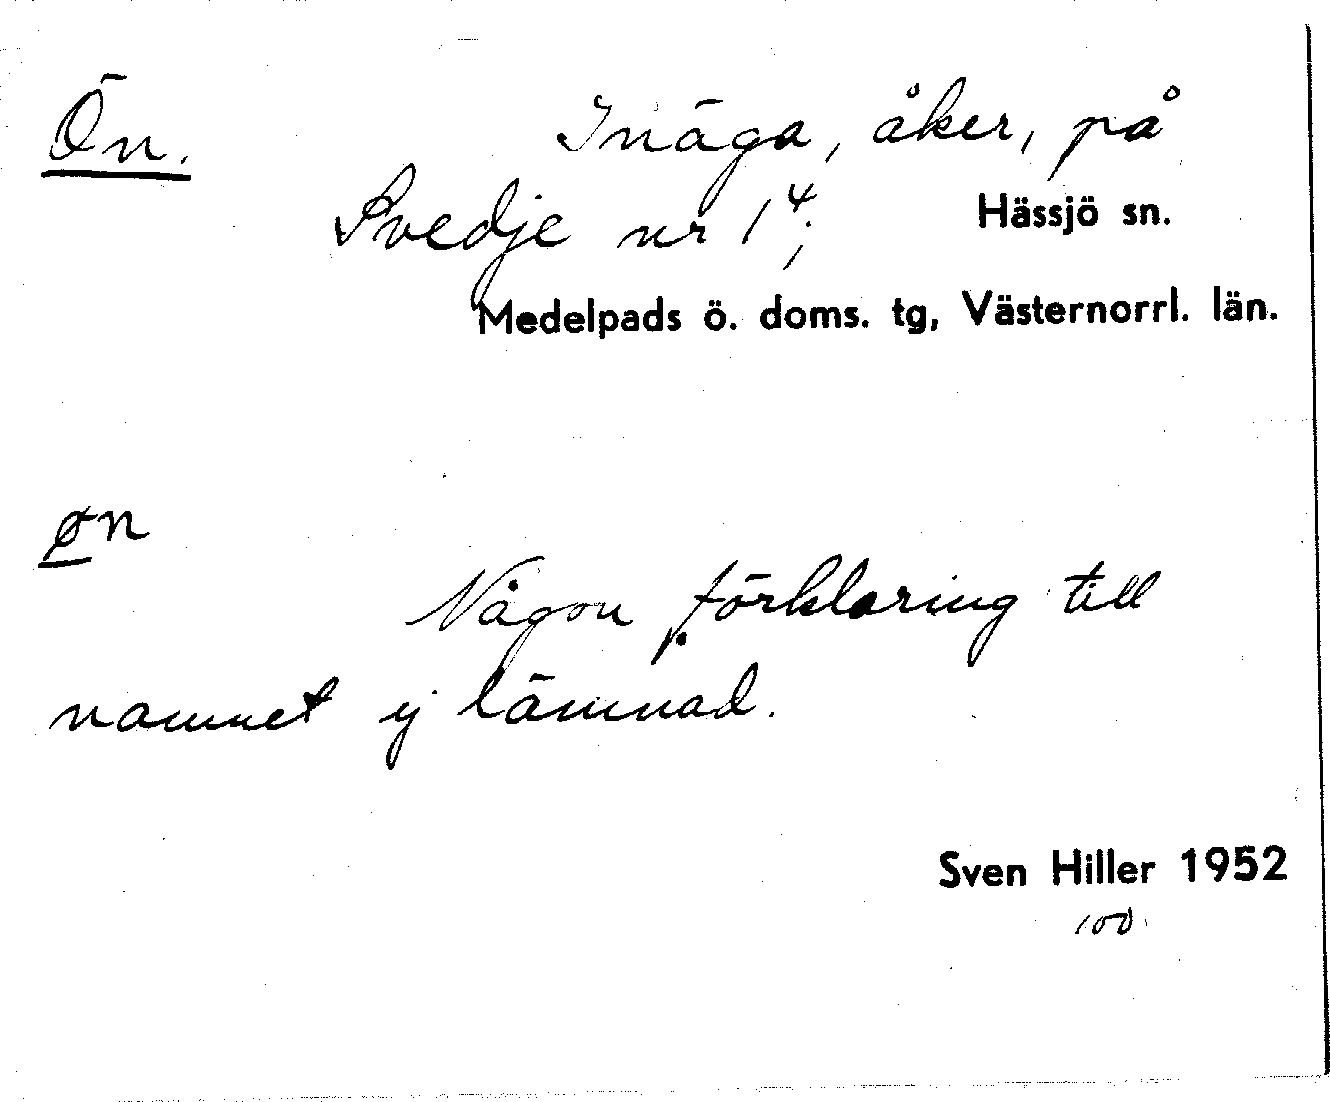 Ön.
Inäga, åker, på
Svedje nr 1⁴;
Hässjö sn.
Medelpads ö. doms. tg, Västernorrl. län.
øn
Någon förklaring till
namnet ej lämnad.
Sven Hiller 1952
100